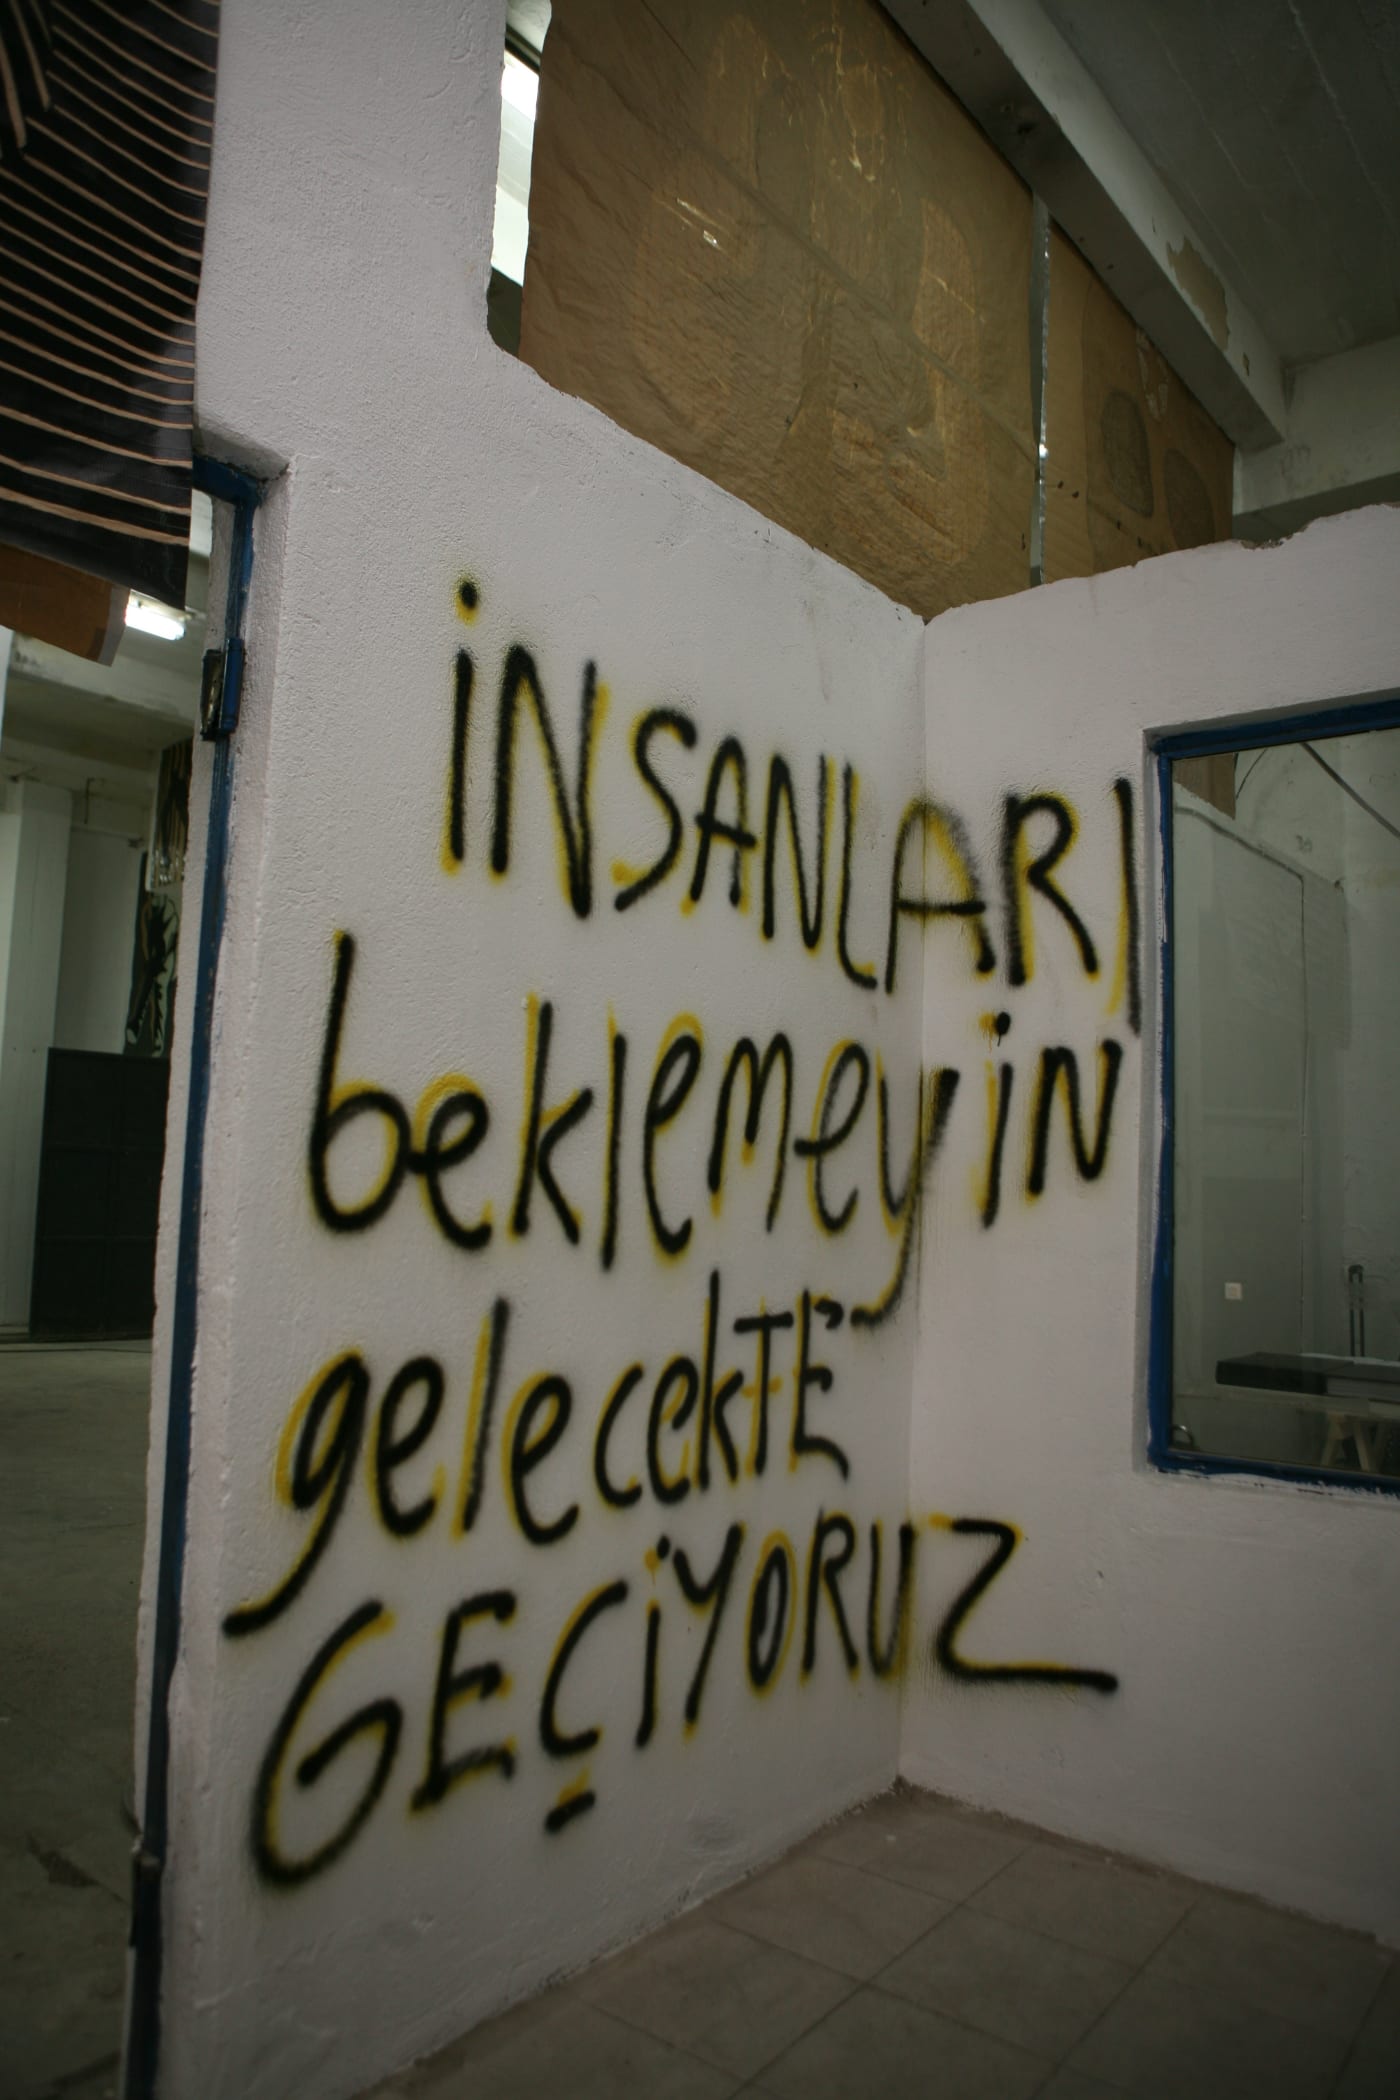 iNSANLARI
bekleMeyiN
gelecekTE
GEÇiYORUZ